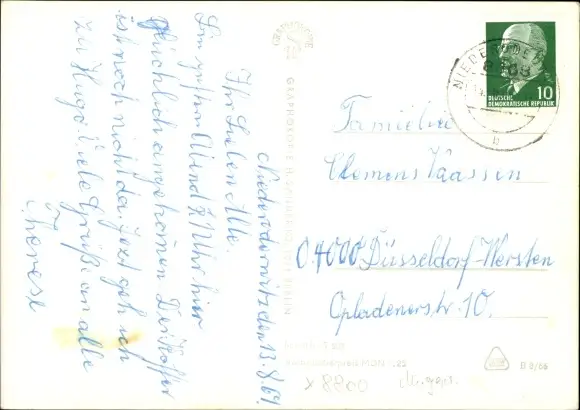 Niederoderwitz den 13.8.69
Ihr Lieben Alle.
Bin gestern Abend 8 Uhr hier
glücklich angekommen Der Koffer
ist noch nicht da. Jezt geh ich
zu Hugo! viele Grüße an alle
Therese
GRAPHOKOPIE H.
BERLIN
NIEDERODERW
b
10
DEUTSCHE
DEMOKRATISCHE REPUBLIK
Familie
Clemens Vaassen
0.4000 Düsseldorf-Wersten
Opladenerstr. 10.
B 8/68
x 8800